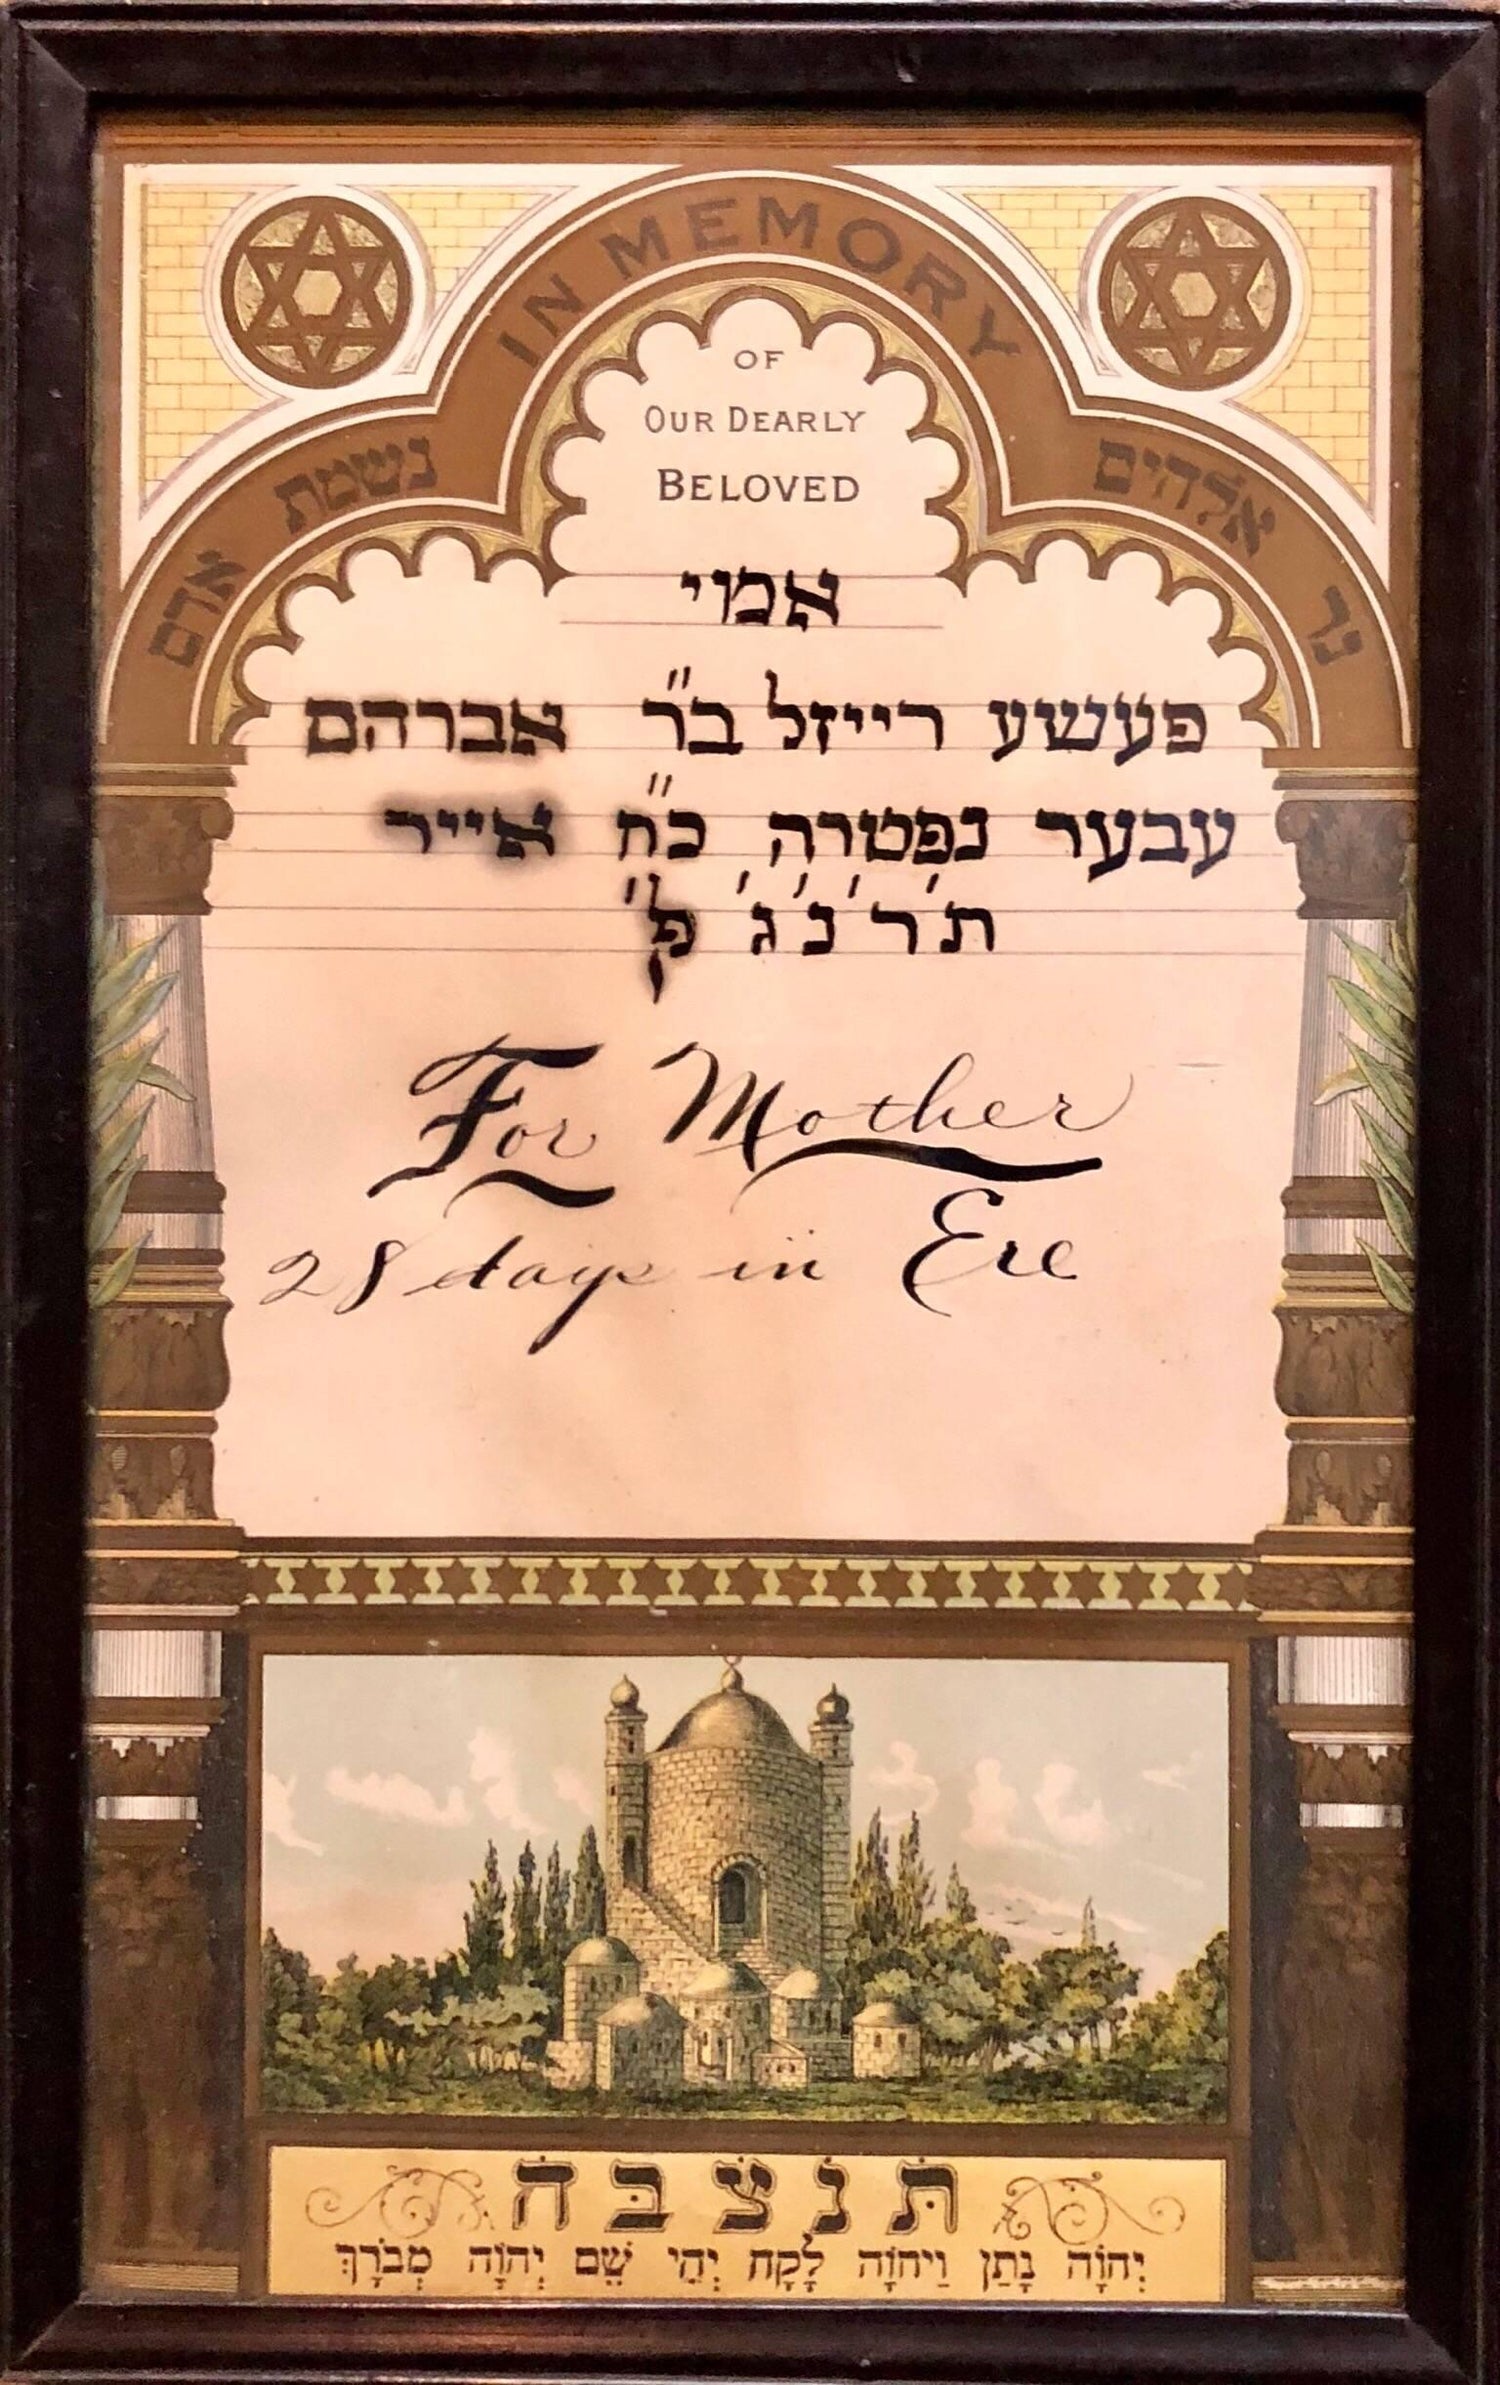 IN MEMORY
נר אלהים נשמת אדם
OF
OUR DEARLY
BELOVED
אמוי
פעשע רייזל בר״ אברהם
עבער נפטרה כ״ח אייר
ת׳ר׳נ׳ג׳ ל׳
For Mother
28 days in Ere
תנצבה
יְהוָֹה נָתַן וַיהוָֹה לָקָח יְהִי שֵׁם יְהוָֹה מְבֹרָךְ